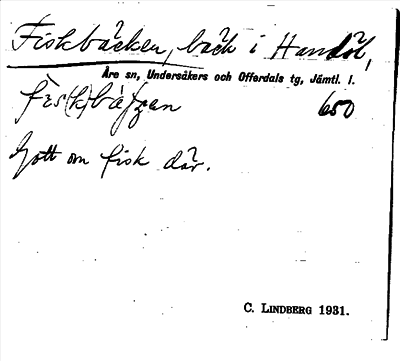 Fiskbäcken, bäck i Handöl,
Åre sn, Undersåkers och Offerdals tg, Jämtl. l.
650
Gott om fisk där.
C. LINDBERG 1931.